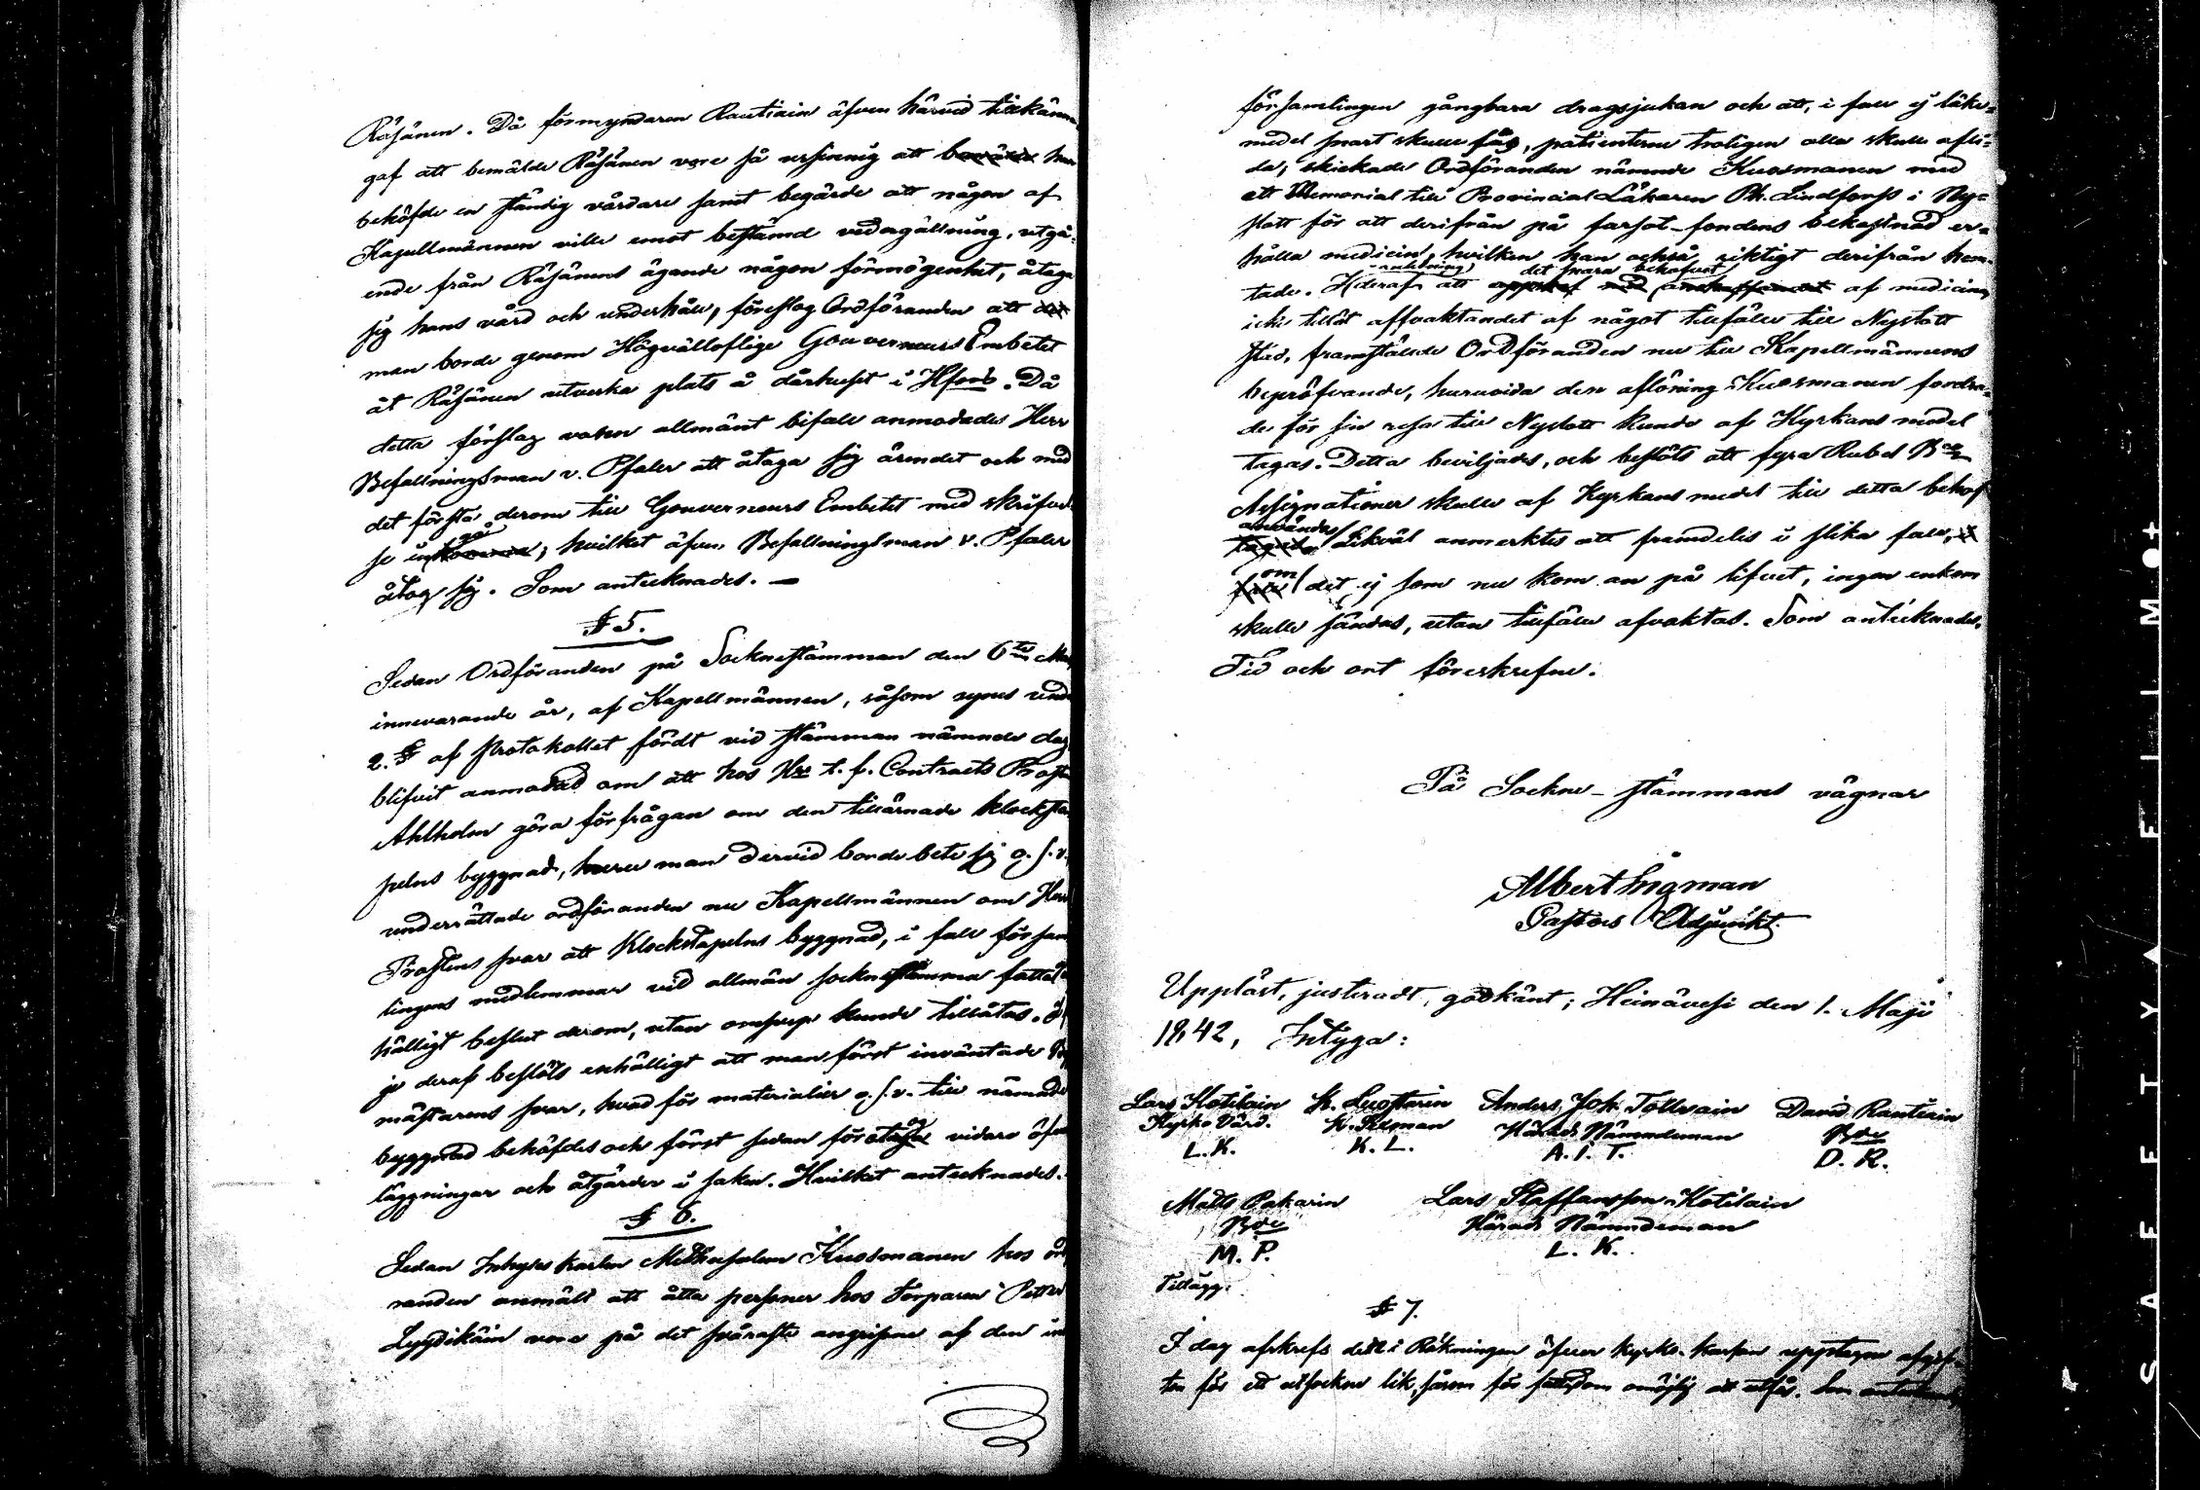 Räsänen. Då förmyndaren Rautiain äfven härvid tillkänna
gaf att bemälde Räsänen vore så ursinnig att han
behöfde en ständig vårdare samt begärde att någon af
Kapellmännen ville emot bestämd vedergällning, utgå-
ende från Räsänens ägande någon förmögenhet, åtaga
sig hans vård och underhåll, föreslog Ordföranden att
man borde genom Högvälloflige Gouverneurs Embetet
åt Räsänen utverka plats å dårhuset i Hfors. Då
detta förslag vann allmänt bifall anmodades Herr
Befallningsman v. Pfaler att åtaga sig ärendet och med
det första derom till Gouverneurs Embetet med skrifvel
se ingå, hvilket äfven Befallningsman v. Pfaler
åtog sig. Som antecknades. —
§ 5.
Sedan Ordföranden på Socknestämman den 6te
innevarande år, af Kapellmännen, såsom synes
2. § af Protokollet fördt vid stämman nämnde dag
blifvit anmodad om att hos Hr t. f. Contracts Prosten
Ahlholm göra förfrågan om den tillärnade klocksta
pelns byggnad, huru man dervid borde bete sig o. s. v.
underrättade ordföranden nu Kapellmännen om Herr
Prostens svar att Klockstapelns byggnad, i fall försam
lingens medlemmar vid allmän socknestämma fattat
hälligt beslut derom, utan omsvep kunde tillåtas.
je deraf beslöts enhälligt att man först inväntade
mästarens svar, hvad för materialier o. s. v. till nämnde
byggnad behöfdes och först sedan företoge vidare öfver
läggningar och åtgärder i saken. Hvilket antecknades.
§ 6.
Sedan Inhyses karlen Methusalem Kuosmanen hos ord
randen anmält att åtta personer hos Torparen Petter
Lyydikäin vore på det svåraste angripne af den in
församlingen gångbara dragsjukan och att, i fall ej läke-
medel snart skulle fås, patienterne troligen alla skulle afli-
da, skickade Ordföranden nämnde Kuosmanen med
ett Memorial till Provincial Läkaren Ph. Lindforss i Ny-
slott för att derifrån på farsot-fondens bekostnad er-
hålla medicin, hvilken han också riktigt derifrån hem-
anledning det snara behofvet
tade. Hderaf att af medicin
icke tillät affvaktandet af något tillfälle till Nyslott
stad, framställde Ordföranden nu till Kapellmännens
bepröfvande, huruvida den aflöning Kuosmanen fordra-
de för sin resa till Nyslott kunde af Kyrkans medel
tagas. Detta beviljades, och beslöts att fyra Rubel Bco
Assignationer skulle af Kyrkans medel till detta behof
användas. Likväl anmerktes att framdeles i slika fall,
om det ej som nu kom an på lifvet, ingen enkom
skulle sändas, utan tillfälle afvaktas. Som antecknades.
Tid och ort föreskrefne.
På Sockne-stämmans vägnar
Albert Ingman
Pastors Adjunkt.
Uppläst, justeradt, godkänt; Heinävesi den 1. Maji
1842, Intyga:
Lars Kotilain K. Luostarin Anders Joh. Tolvain David Rautiain
Kyrko Värd. K. Kuman Härads Nämndeman Bde
L. K. K. L. A. I. T. D. R.
Matts Pakarin Lars Staffansson Kotilain
Bde Härads Nämndeman
M. P. L. K.
Tillägg.
§ 7.
I dag afskrefs den i Räkningen öfver kyrko-kassan upptagen afgif-
ten för ett utsocknes lik, såsom för omöjlig att utfås. Som antecknades